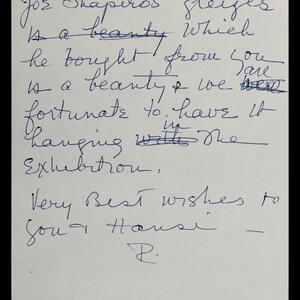 Joe Shapiro's Gleizes
is a beauty which
he bought from you
is a beauty & we are
fortunate to have it
hanging in The
Exhibition.
Very Best wishes to
you & Hansi —
R.